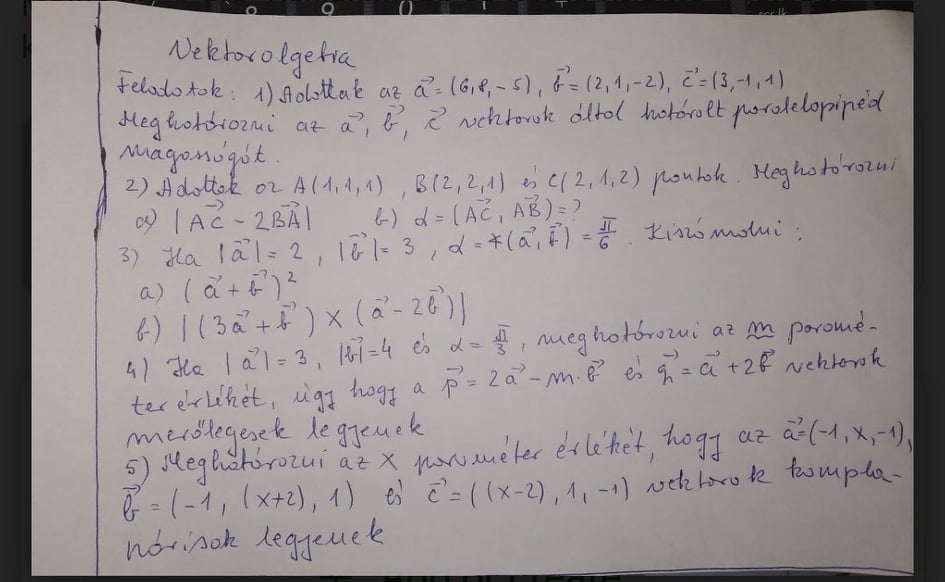 Vektorolgebra
Feladatok: 1) Adottak az a⃗=(6,8,-5), b⃗=(2,1,-2), c⃗=(3,-1,1)
Meghatározni az a⃗, b⃗, c⃗ vektorok által határolt paralelopipéd
magosságát.
2) Adottak az A(1,1,1), B(2,2,1) és C(2,1,2) pontok. Meghatározni
a) |AC⃗ - 2BA⃗| b) α = (AC⃗, AB⃗) = ?
3) Ha |a⃗| = 2, |b⃗| = 3, α = ∢(a⃗, b⃗) = π/6. Kiszámolni:
a) (a⃗ + b⃗)²
b) |(3a⃗ + b⃗) × (a⃗ - 2b⃗)|
4) Ha |a⃗| = 3, |b⃗|=4 és α = π/3, meghatározni az m paramé-
ter értékét, úgy hogy a p⃗ = 2a⃗ - m·b⃗ és q⃗ = a⃗ + 2b⃗ vektorok
merőlegesek legyenek
5) Meghatározni az x paraméter értékét, hogy az a⃗=(-1, x, -1),
b⃗ = (-1, (x+2), 1) és c⃗ = ((x-2), 1, -1) vektorok kompla-
nárisok legyenek